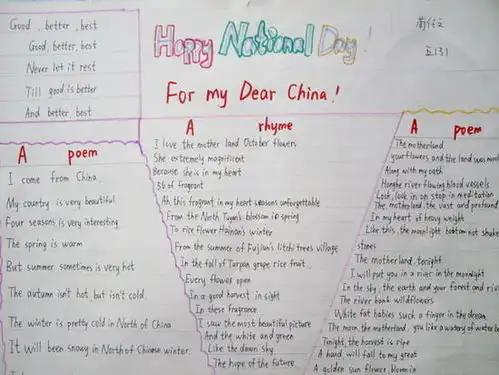 Good, better, best
Good, better, best
Never let it rest
Till good is better
And better, best
Happy National Day!
For my Dear China!
五(3)
A poem
I come from China.
My country is very beautiful
Four seasons is very interesting
The spring is warm
But summer sometimes is very hot
The autumn isn't hot, but isn't cold.
The winter is pretty cold in North of China
It will been snowy in North of Chinese winter
A rhyme
I love the mother land October flowers
She extremely magnificent
Because she is in my heart
56 of fragrant
Ah this fragrant in my heart seasons unforgettable
From the North Tuyan's blossom in spring
To rice flower Hainan's winter
From the summer of Fujian's litchi trees village
In the fall of Turpan grape rice fruit
Every flower open
In a good harvest in sight
In these fragrance
I saw the most beautiful picture
And the white and green
Like the dawn sky
The hope of the future
A poem
The motherland
your flowers and the land was
Along with my oath
Honghe river flowing blood vessels
Look, look in on stop in meditation
The motherland, the vast and profound
In my heart of heavy weight
Like this, the moonlight bottom not shake
stones
The motherland, tonight
I will put you in a river in the moonlight
In the sky, the earth and your forest and
The river bank wildflowers
White fat babies suck a finger in the dream
The moon, the motherland, you like a watery of water
Tonight, the harvest is ripe
A hand, will fall to my great
A golden sun flower, bloom in